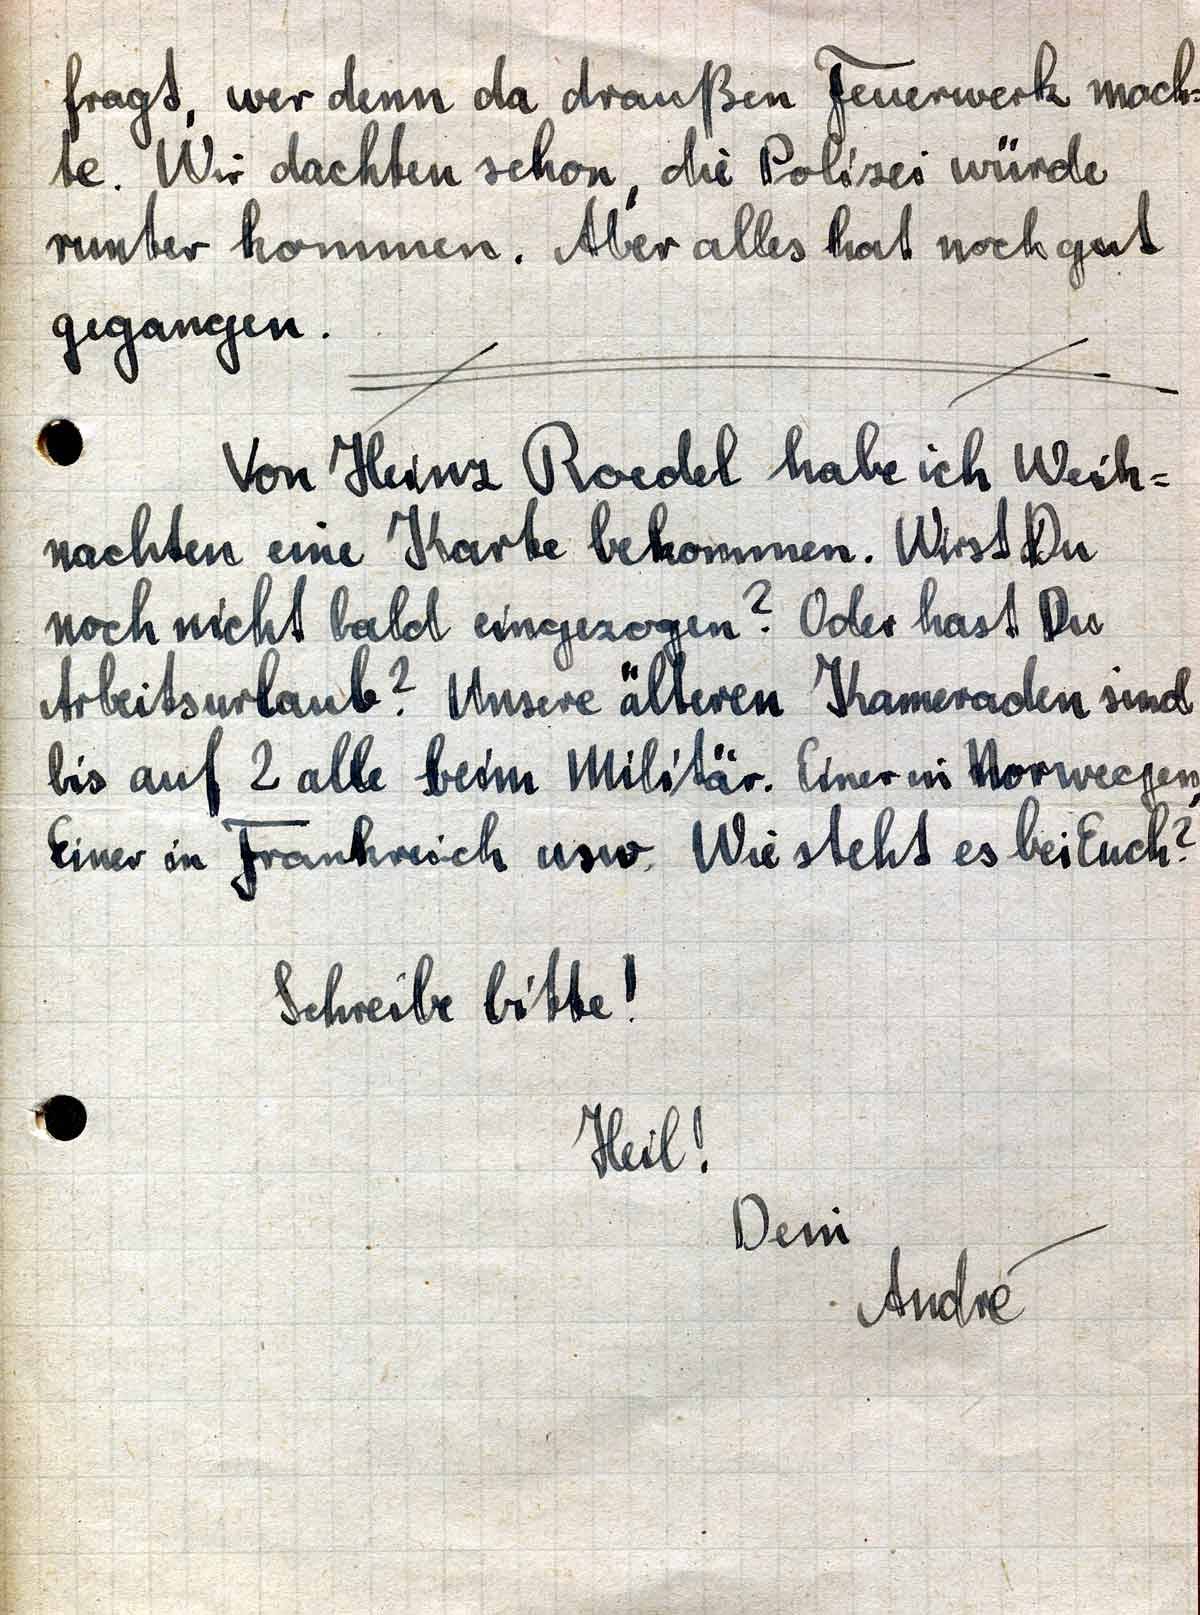 fragt, wer denn da draußen Feuerwerk mach=
te. Wir dachten schon, die Polizei würde
runter kommen. Aber alles hat noch gut
gegangen.
Von Heinz Roedel habe ich Weih=
nachten eine Karte bekommen. Wirst Du
noch nicht bald eingezogen? Oder hast Du
Arbeitsurlaub? Unsere älteren Kameraden sind
bis auf 2 alle beim Militär. Einer in Norwegen,
Einer in Frankreich usw. Wie steht es bei Euch?
Schreibe bitte!
Heil!
Dein
André